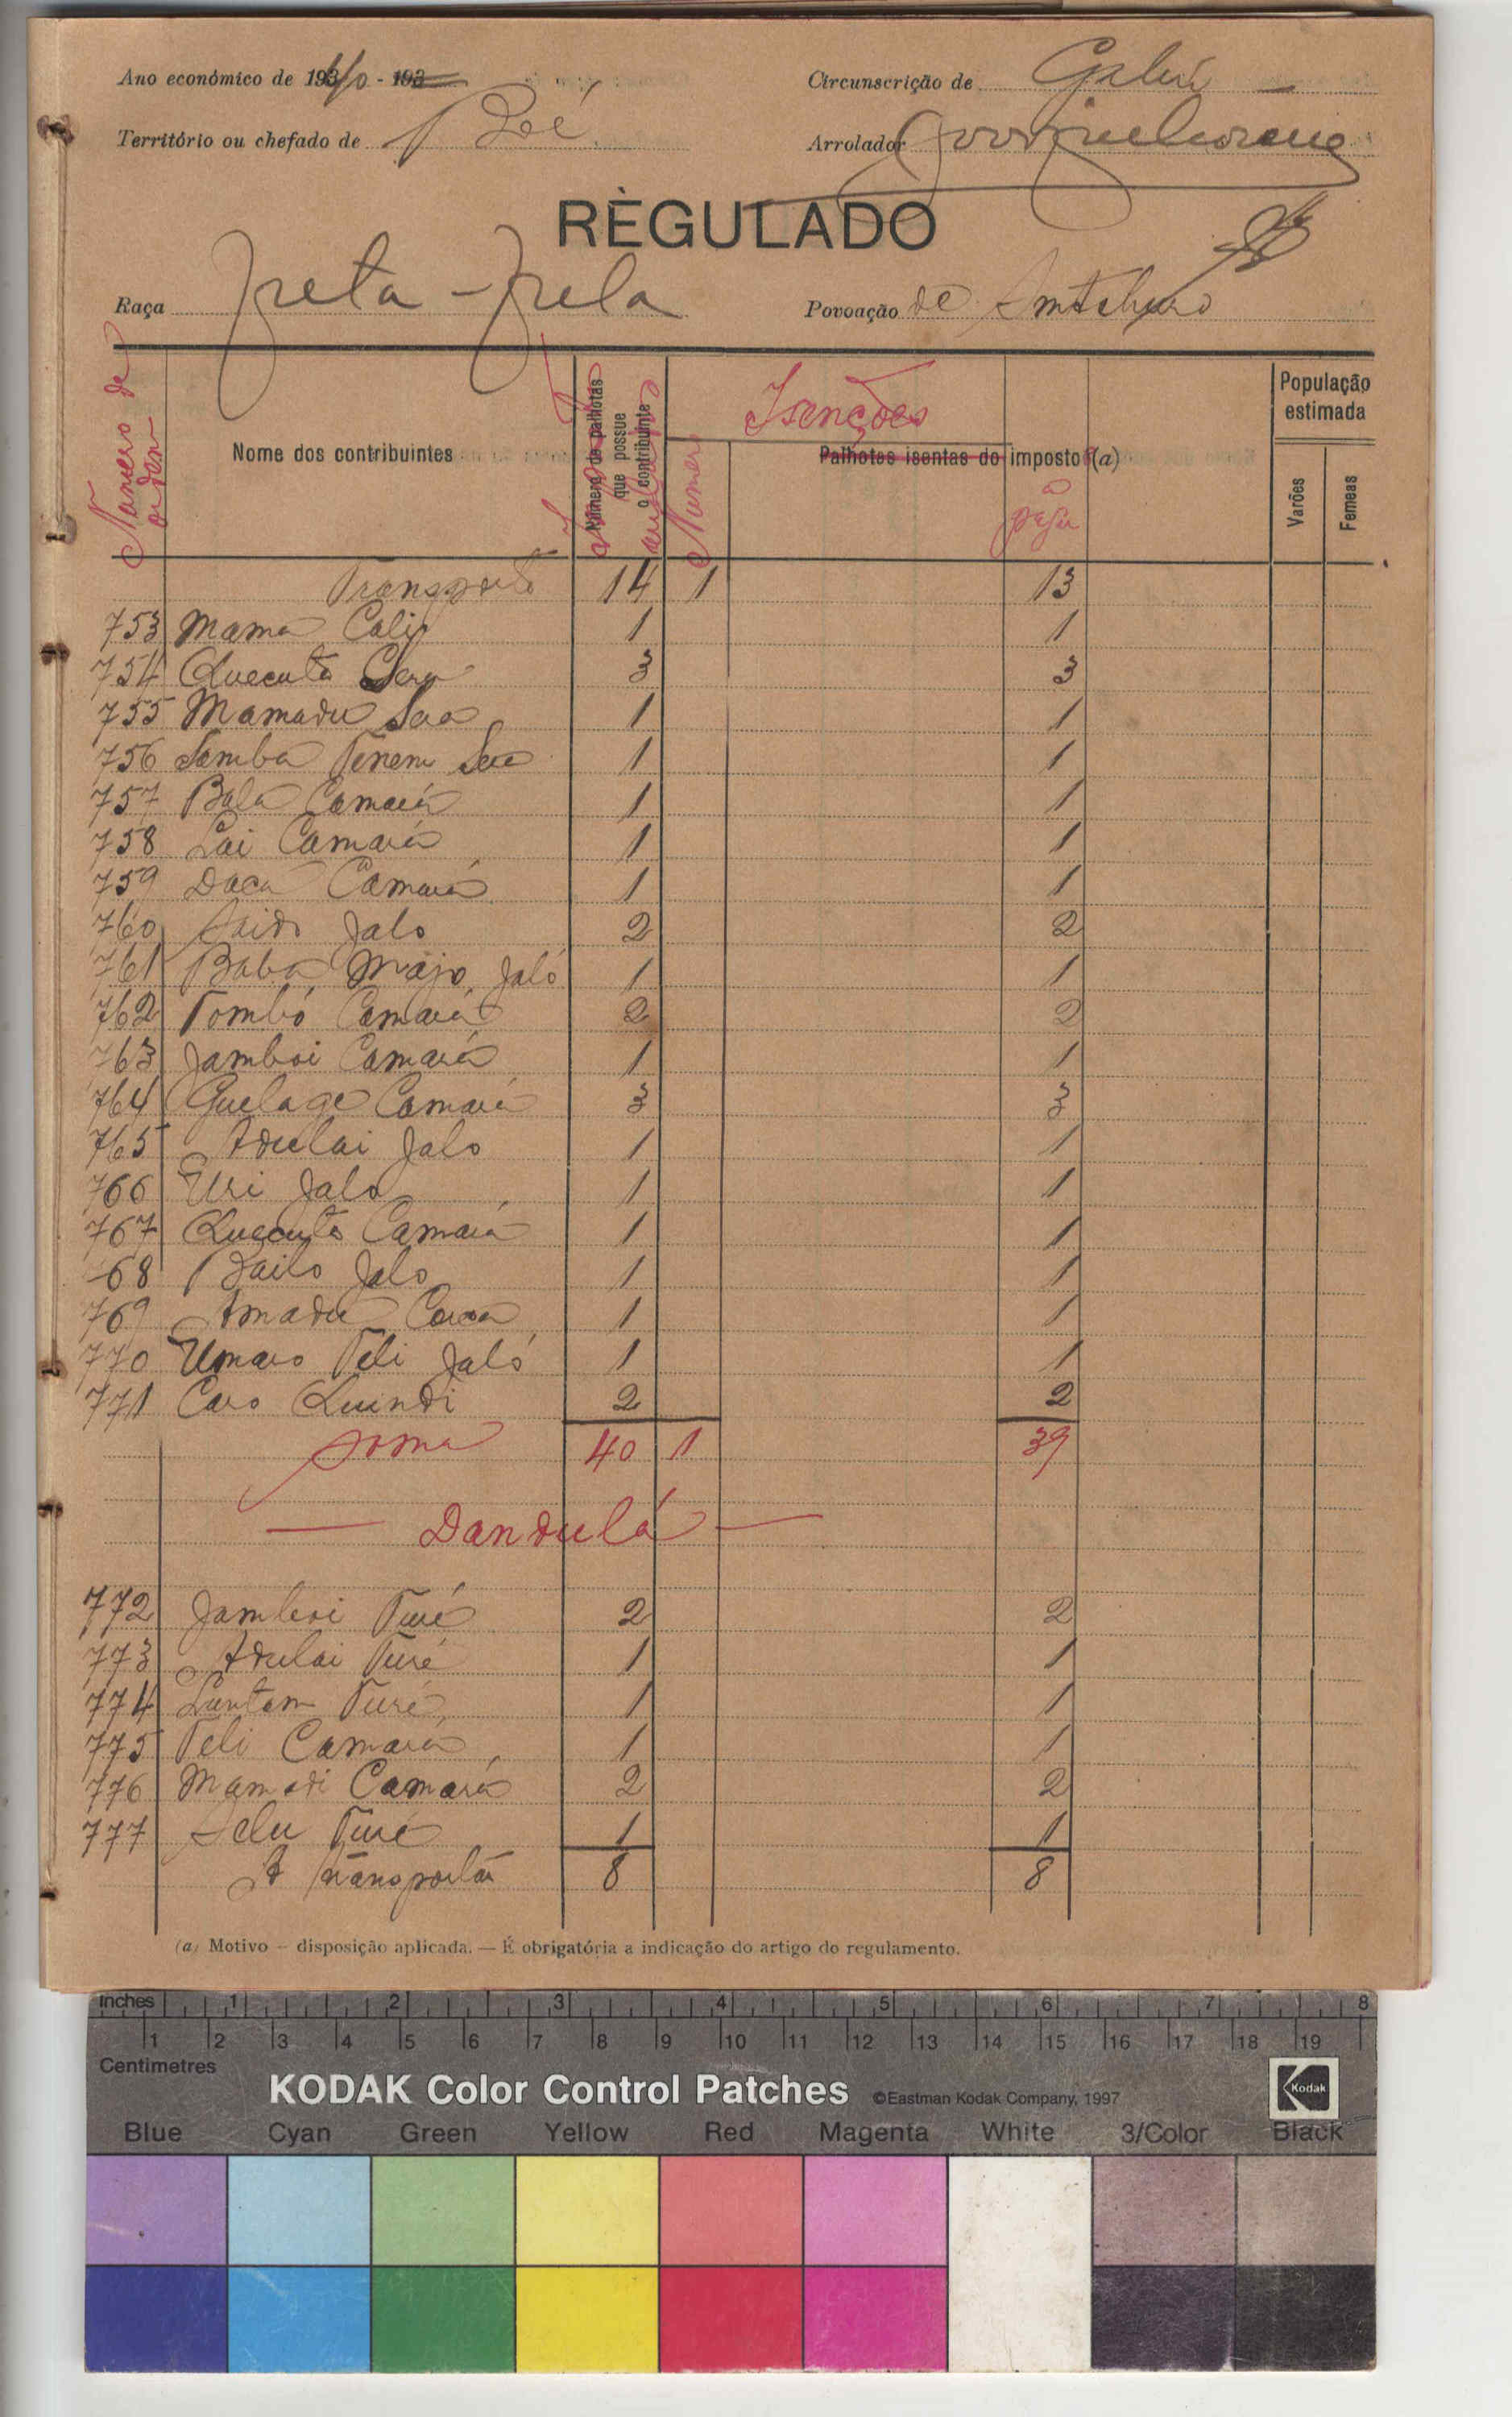 Ano económico de 1940 - 193
Circunscrição de Gabú
Território ou chefado de Boé
Arrolador
REGULADO
Raça Preta - Fula
Povoação de
Numero de ordem
Nome dos contribuintes
Número de palhotas que possue o contribuinte
Isenções
Numero
Palhotas isentas do imposto (a)
a pagar
População estimada
Varões
Femeas
Transporte 14 1 13
753 Mama Cali 1 1
754 Quecuta Sera 3 3
755 Mamadu 1 1
756 Samba Tenem 1 1
757 Bala Camará 1 1
758 Lai Camará 1 1
759 Daca Camará 1 1
760 Saido Jalo 2 2
761 Baba Majo Jaló 1 1
762 Tombó Camará 2 2
763 Jamboi Camará 1 1
764 Guelage Camará 3 3
765 Adulai Jalo 1 1
766 Uri Jalo 1 1
767 Quecuta Camará 1 1
768 Bailo Jalo 1 1
769 Amadu 1 1
770 Umaro Teli Jaló 1 1
771 Caro Quindi 2 2
Soma 40 1 39
— Dandulá —
772 Jamboi Turé 2 2
773 Adulai Turé 1 1
774 Lantam Turé 1 1
775 Teli Camará 1 1
776 Mamadi Camará 2 2
777 Selu Turé 1 1
A transportar 8 8
(a) Motivo — disposição aplicada. — É obrigatória a indicação do artigo do regulamento.
inches 1 2 3 4 5 6 7 8
1 2 3 4 5 6 7 8 9 10 11 12 13 14 15 16 17 18 19
Centimetres
KODAK Color Control Patches ©Eastman Kodak Company, 1997 Kodak
Blue Cyan Green Yellow Red Magenta White 3/Color Black